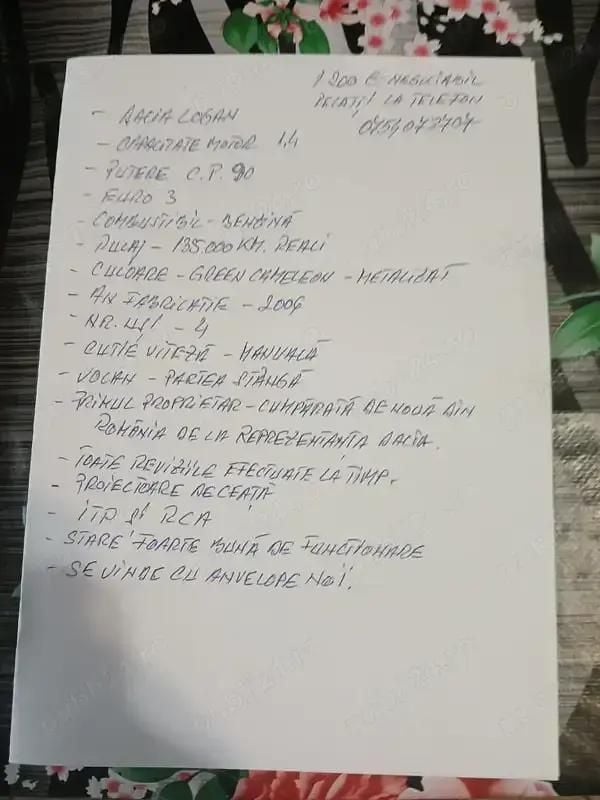 1200 € NEGOCIABIL
RELAȚII LA TELEFON
- DACIA LOGAN
- CAPACITATE MOTOR 1,4
- PUTERE C.P. 90
- EURO 3
- COMBUSTIBIL - BENZINĂ
- RULAJ - 135.000 KM. REALI
- CULOARE - GREEN CAMELEON - METALIZAT
- AN FABRICATIE - 2006
- NR. UȘI - 4
- CUTIE VITEZĂ - MANUALĂ
- VOLAN - PARTEA STÂNGĂ
- PRIMUL PROPRIETAR - CUMPĂRATĂ DE NOUĂ DIN
ROMÂNIA DE LA REPREZENTANȚA DACIA.
- TOATE REVIZIILE EFECTUATE LA TIMP.
- PROIECTOARE DE CEAȚĂ
- ITP ȘI RCA
- STARE FOARTE BUNĂ DE FUNCTIONARE
- SE VINDE CU ANVELOPE NOI.